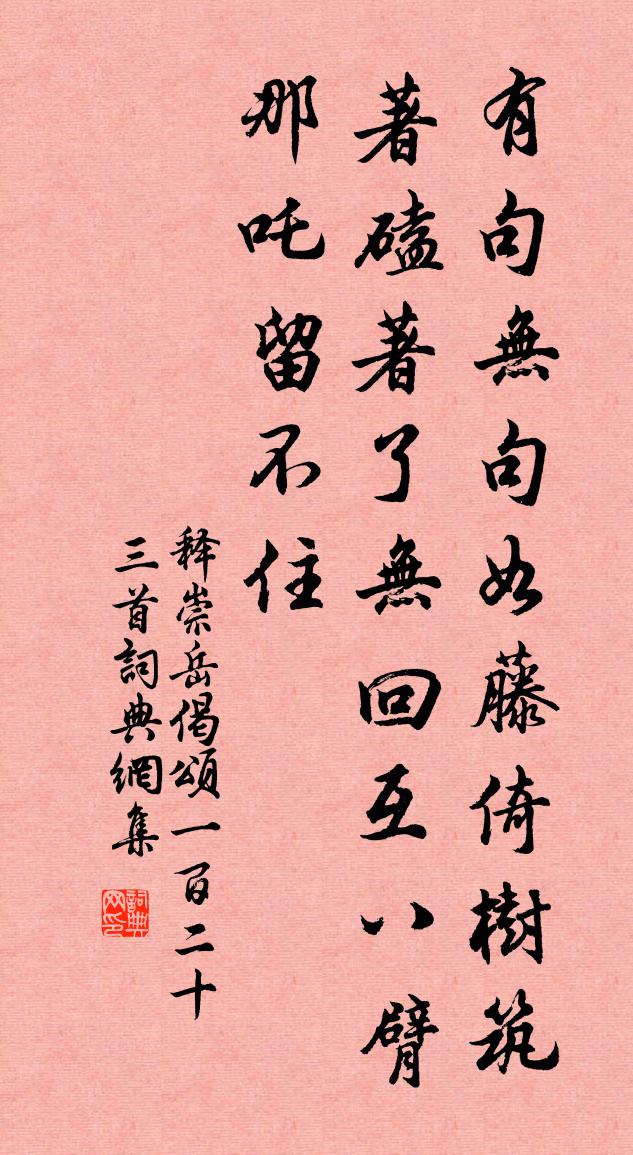 有句無句如藤倚樹筑
著磕著了無回互八臂
那吒留不住
释崇岳偈頌一百二十
三首詞典網集
詞典
网印